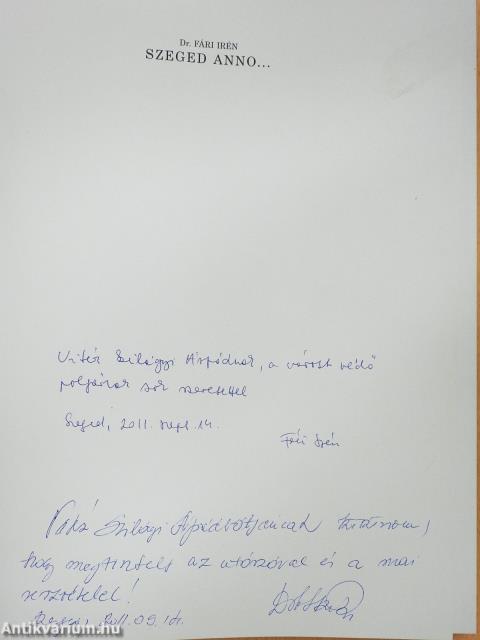 Dr. FÁRI IRÉN
SZEGED ANNO...
Vitéz Szilágyi Árpádnak, a várost védő
polgárnak sok szeretettel
Szeged, 2011. szept. 14.
Fári Irén
Szilágyi
hogy megtisztelt az utószóval és a mai
Szeged, 2011. 09. 14.
Antikvarium.hu